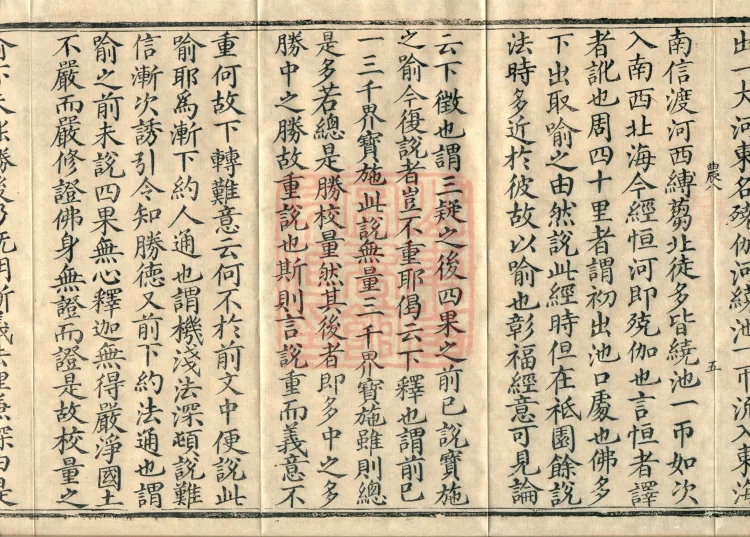 出一大河東名殑伽河繞池一帀流入東海
南信渡河西縛蒭北徙多皆繞池一帀如次
入南西北海今經恒河即殑伽也言恒者譯
者訛也周四十里者謂初出池口處也佛多
下出取喻之由然說此經時但在祇園餘說
法時多近於彼故以喻也彰福經意可見論
農八
五
云下徵也謂三疑之後四果之前已說寶施
之喻今復說者豈不重耶偈云下釋也謂前已
一三千界寶施此說無量三千界寶施雖則總
是多若總是勝校量然其後者即多中之多
勝中之勝故重說也斯則言說重而義意不
重何故下轉難意云何不於前文中便說此
喻耶為漸下約人通也謂機淺法深頓說難
信漸次誘引令知勝德又前下約法通也謂
喻之前未說四果無心釋迦無得嚴淨國土
不嚴而嚴修證佛身無證而證是故校量之